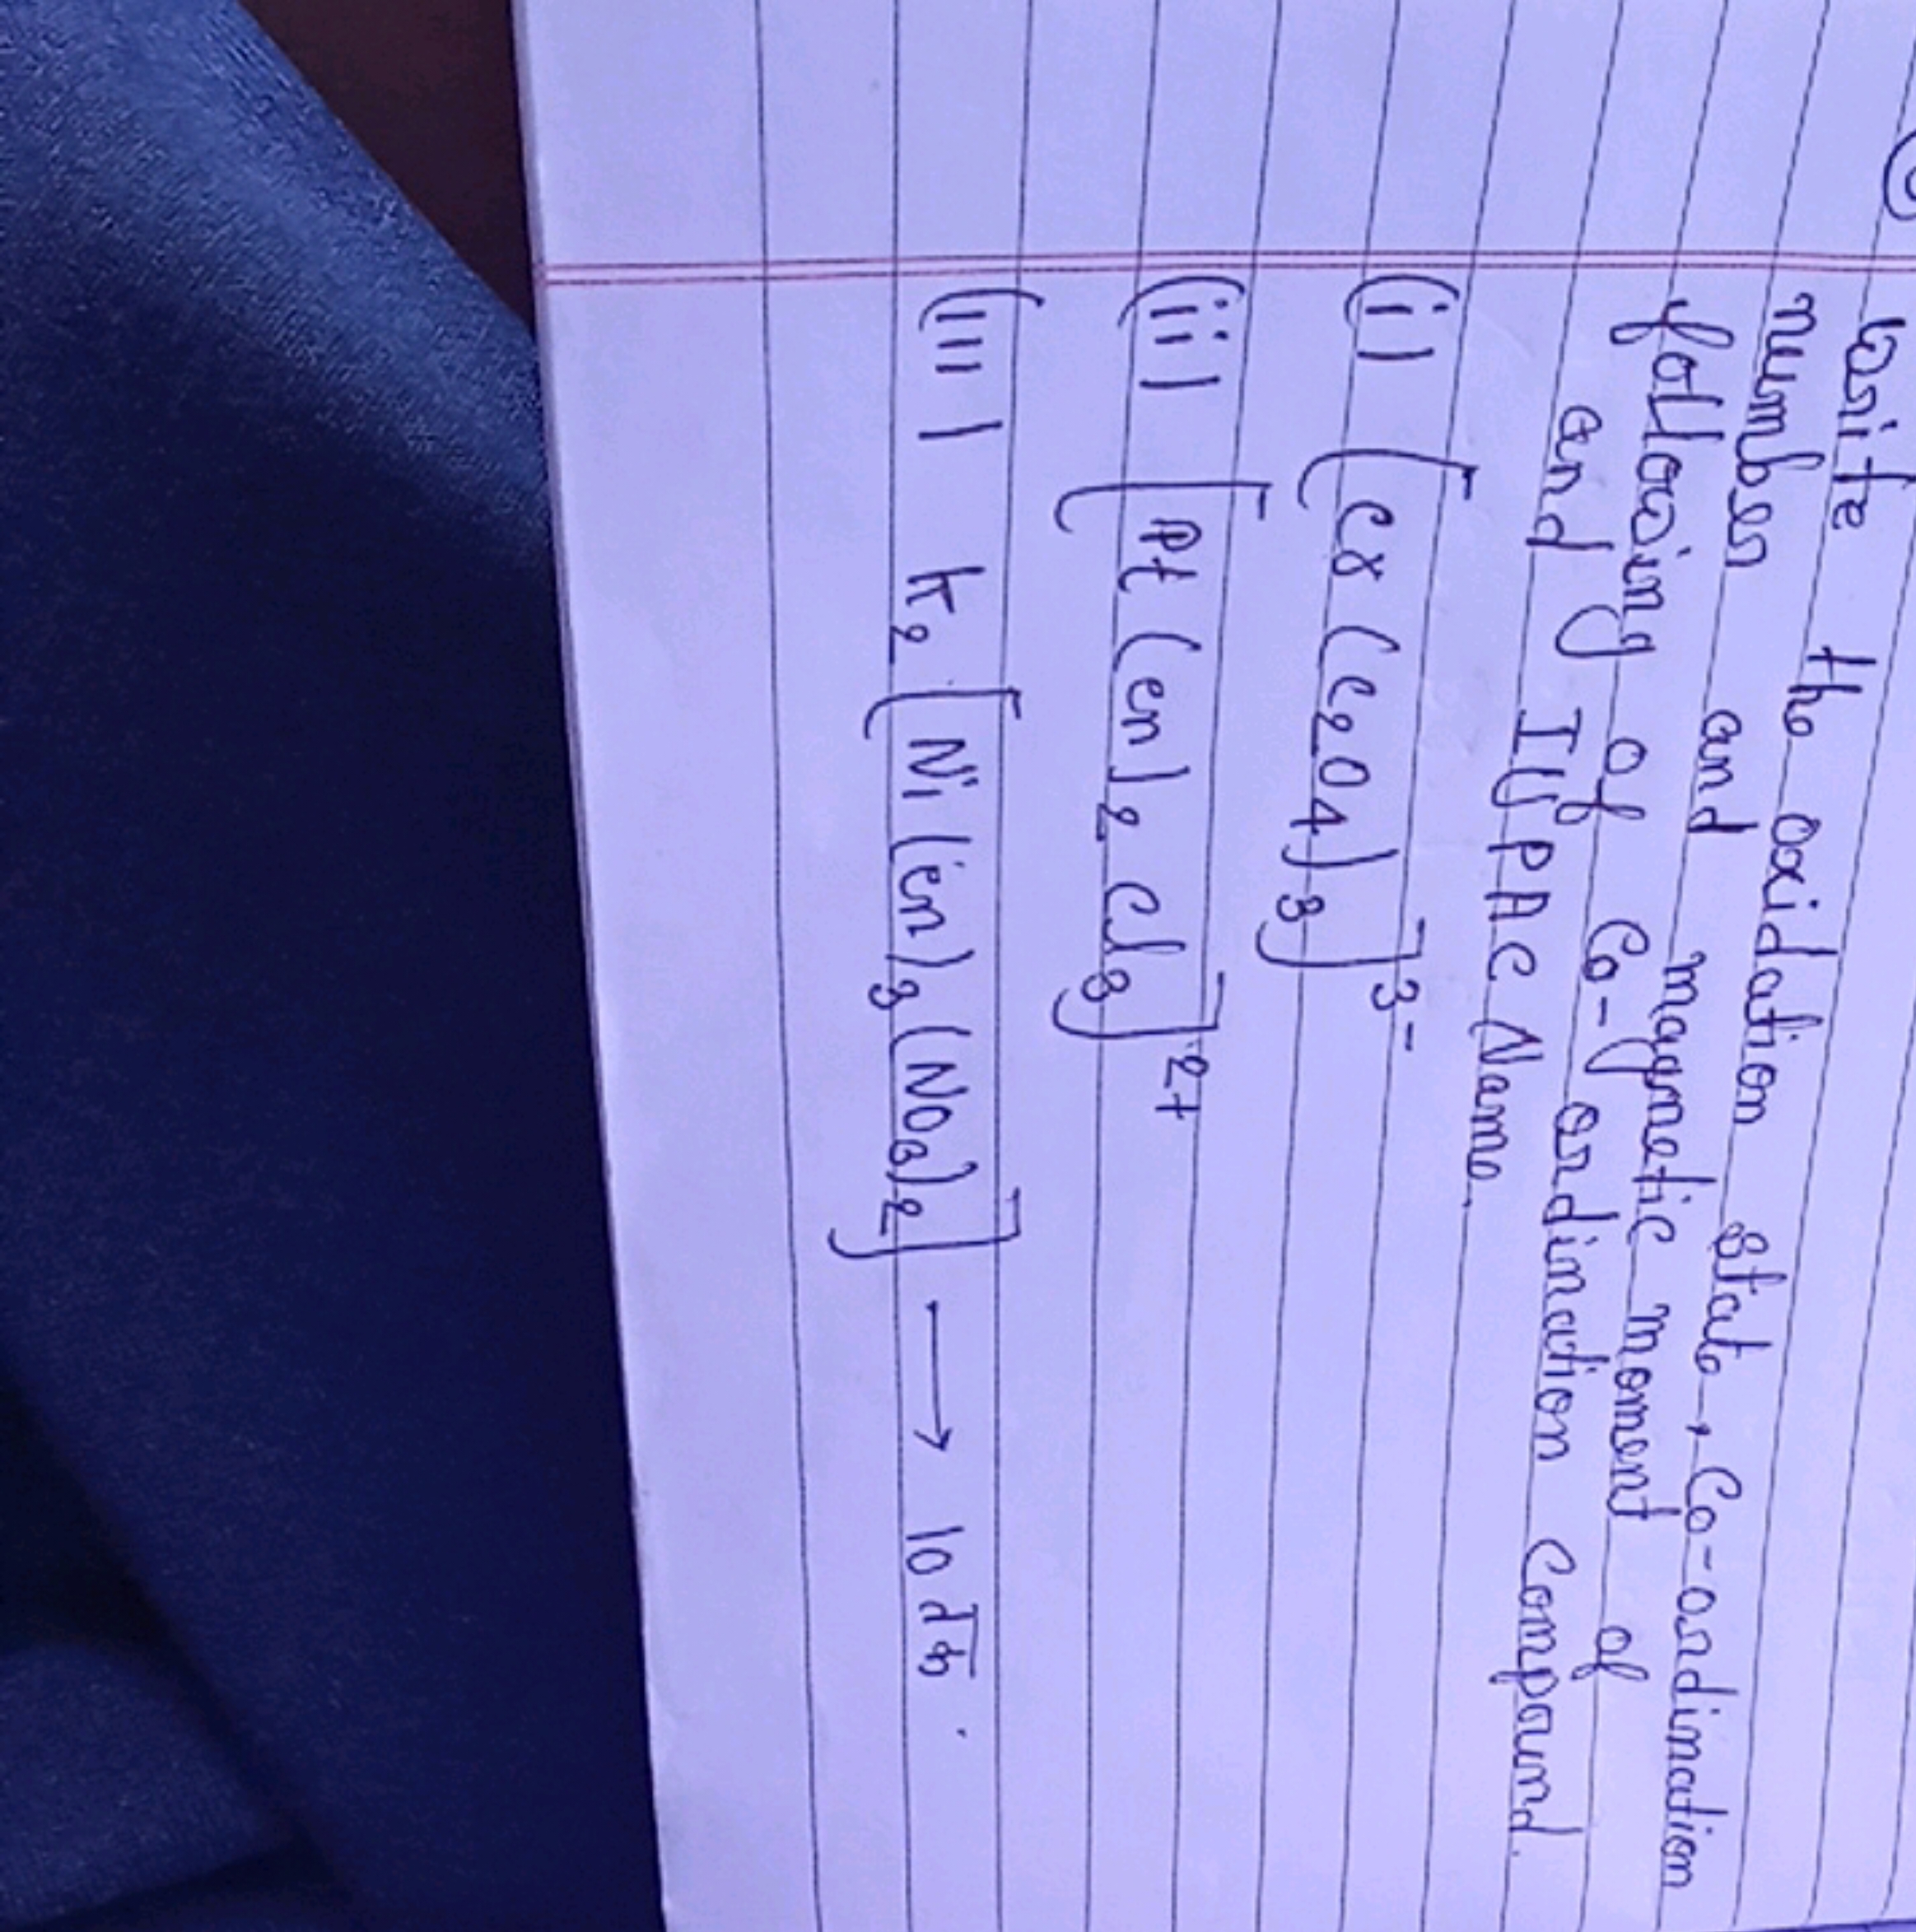 Write the oxidation state, Co-ordination
number and magnetic moment of
following of Co-ordination Compound.
and IUPAC Name.
(i) [Cr(C₂O₄)₃]³⁻
(ii) [Pt(en)₂Cl₃]²⁺
(iii) K₂[Ni(en)₃(NO₃)₂] → 10